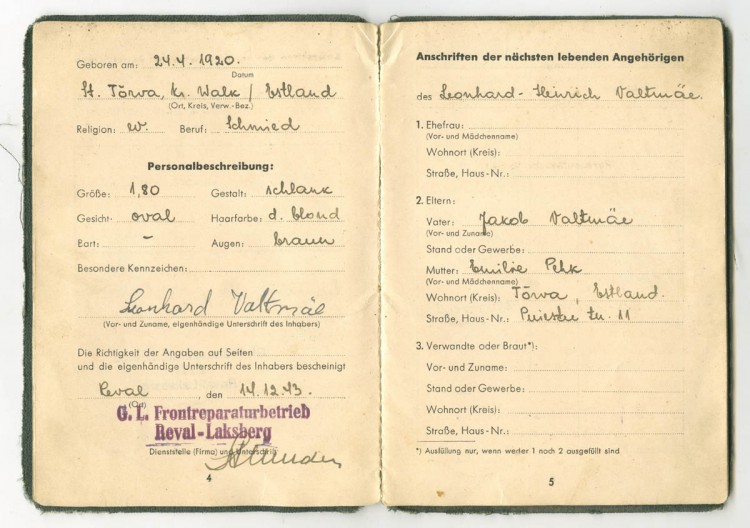 Geboren am: 24.4.1920.
Datum
St. Tõrva, Kr. Walk / Estland
(Ort, Kreis, Verw.-Bez.)
Religion: ev. Beruf: Schmied
Personalbeschreibung:
Größe: 1,80 Gestalt: schlank
Gesicht: oval Haarfarbe: d. blond
Bart: – Augen: braun
Besondere Kennzeichen:
Leonhard Valtmäe
(Vor- und Zuname, eigenhändige Unterschrift des Inhabers)
Die Richtigkeit der Angaben auf Seiten
und die eigenhändige Unterschrift des Inhabers bescheinigt
Reval, den 14.12.43.
(Ort)
G. L. Frontreparaturbetrieb
Reval-Laksberg
Dienststelle (Firma) und Unterschrift
4
Anschriften der nächsten lebenden Angehörigen
des Leonhard-Heinrich Valtmäe.
1. Ehefrau:
(Vor- und Mädchenname)
Wohnort (Kreis):
Straße, Haus-Nr.:
2. Eltern:
Vater: Jakob Valtmäe
(Vor- und Zuname)
Stand oder Gewerbe:
Mutter: Emilie Pehk
(Vor- und Mädchenname)
Wohnort (Kreis): Tõrva, Estland.
Straße, Haus-Nr.: 11
3. Verwandte oder Braut*):
Vor- und Zuname:
Stand oder Gewerbe:
Wohnort (Kreis):
Straße, Haus-Nr.:
*) Ausfüllung nur, wenn weder 1 noch 2 ausgefüllt sind.
5